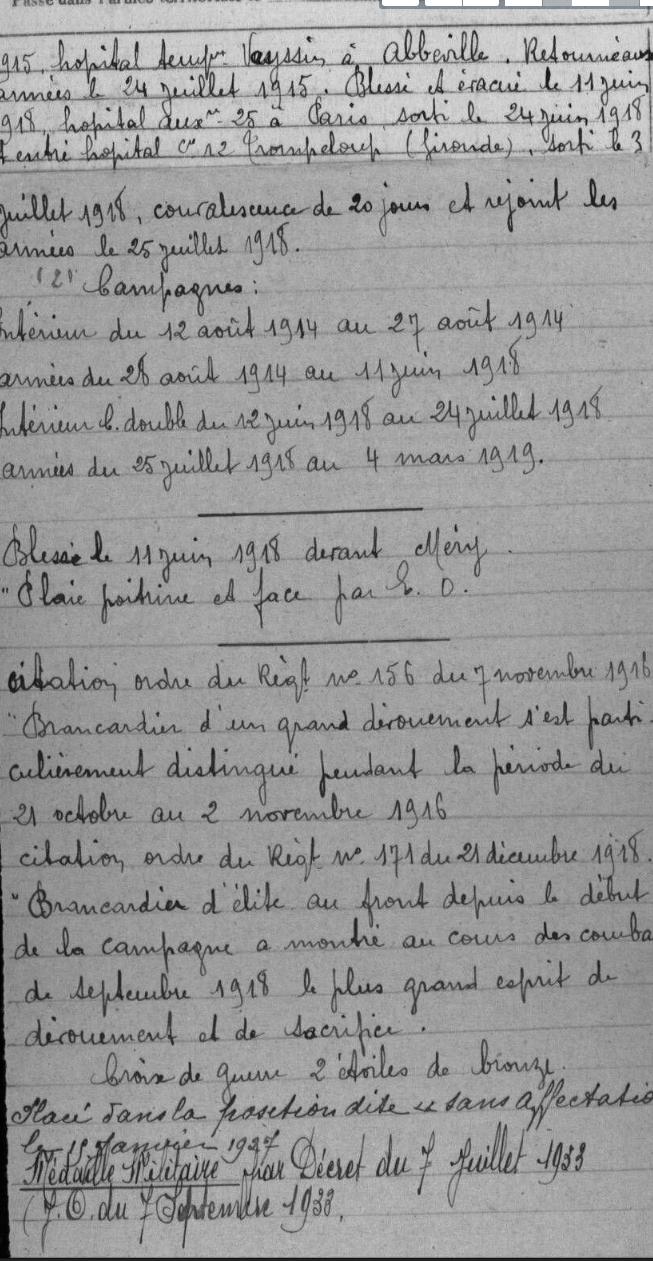 Passé dans l'armée territoriale le
915, hopital temp^re Vayssin à Abbeville. Retourné aux
armées le 24 juillet 1915. Blessé et évacué le 11 juin
918, hopital aux^re 25 à Paris, sorti le 24 juin 1918
et entré hopital C^re 12 Trompeloup (Gironde), sorti le 3
juillet 1918, convalescence de 20 jours et rejoint les
armées le 25 juillet 1918.
(2) Campagnes:
Intérieur du 12 août 1914 au 27 août 1914
armées du 28 août 1914 au 11 juin 1918
Intérieur C. double du 12 juin 1918 au 24 juillet 1918
armées du 25 juillet 1918 au 4 mars 1919.
Blessé le 11 juin 1918 devant Méry.
"Plaie poitrine et face par E. O.
citation ordre du Règt n° 156 du 7 novembre 1916
"Brancardier d'un grand dévouement s'est parti-
culièrement distingué pendant la période du
21 octobre au 2 novembre 1916
citation ordre du Règt n° 171 du 21 décembre 1918.
"Brancardier d'élite au front depuis le début
de la campagne a montré au cours des comba
de septembre 1918 le plus grand esprit de
dévouement et de sacrifice.
Croix de guerre 2 étoiles de bronze.
Placé dans la position dite "sans affectatio
le 15 Janvier 1927
Médaille Militaire par Décret du 7 Juillet 1933
(J.O. du 7 Septembre 1933.